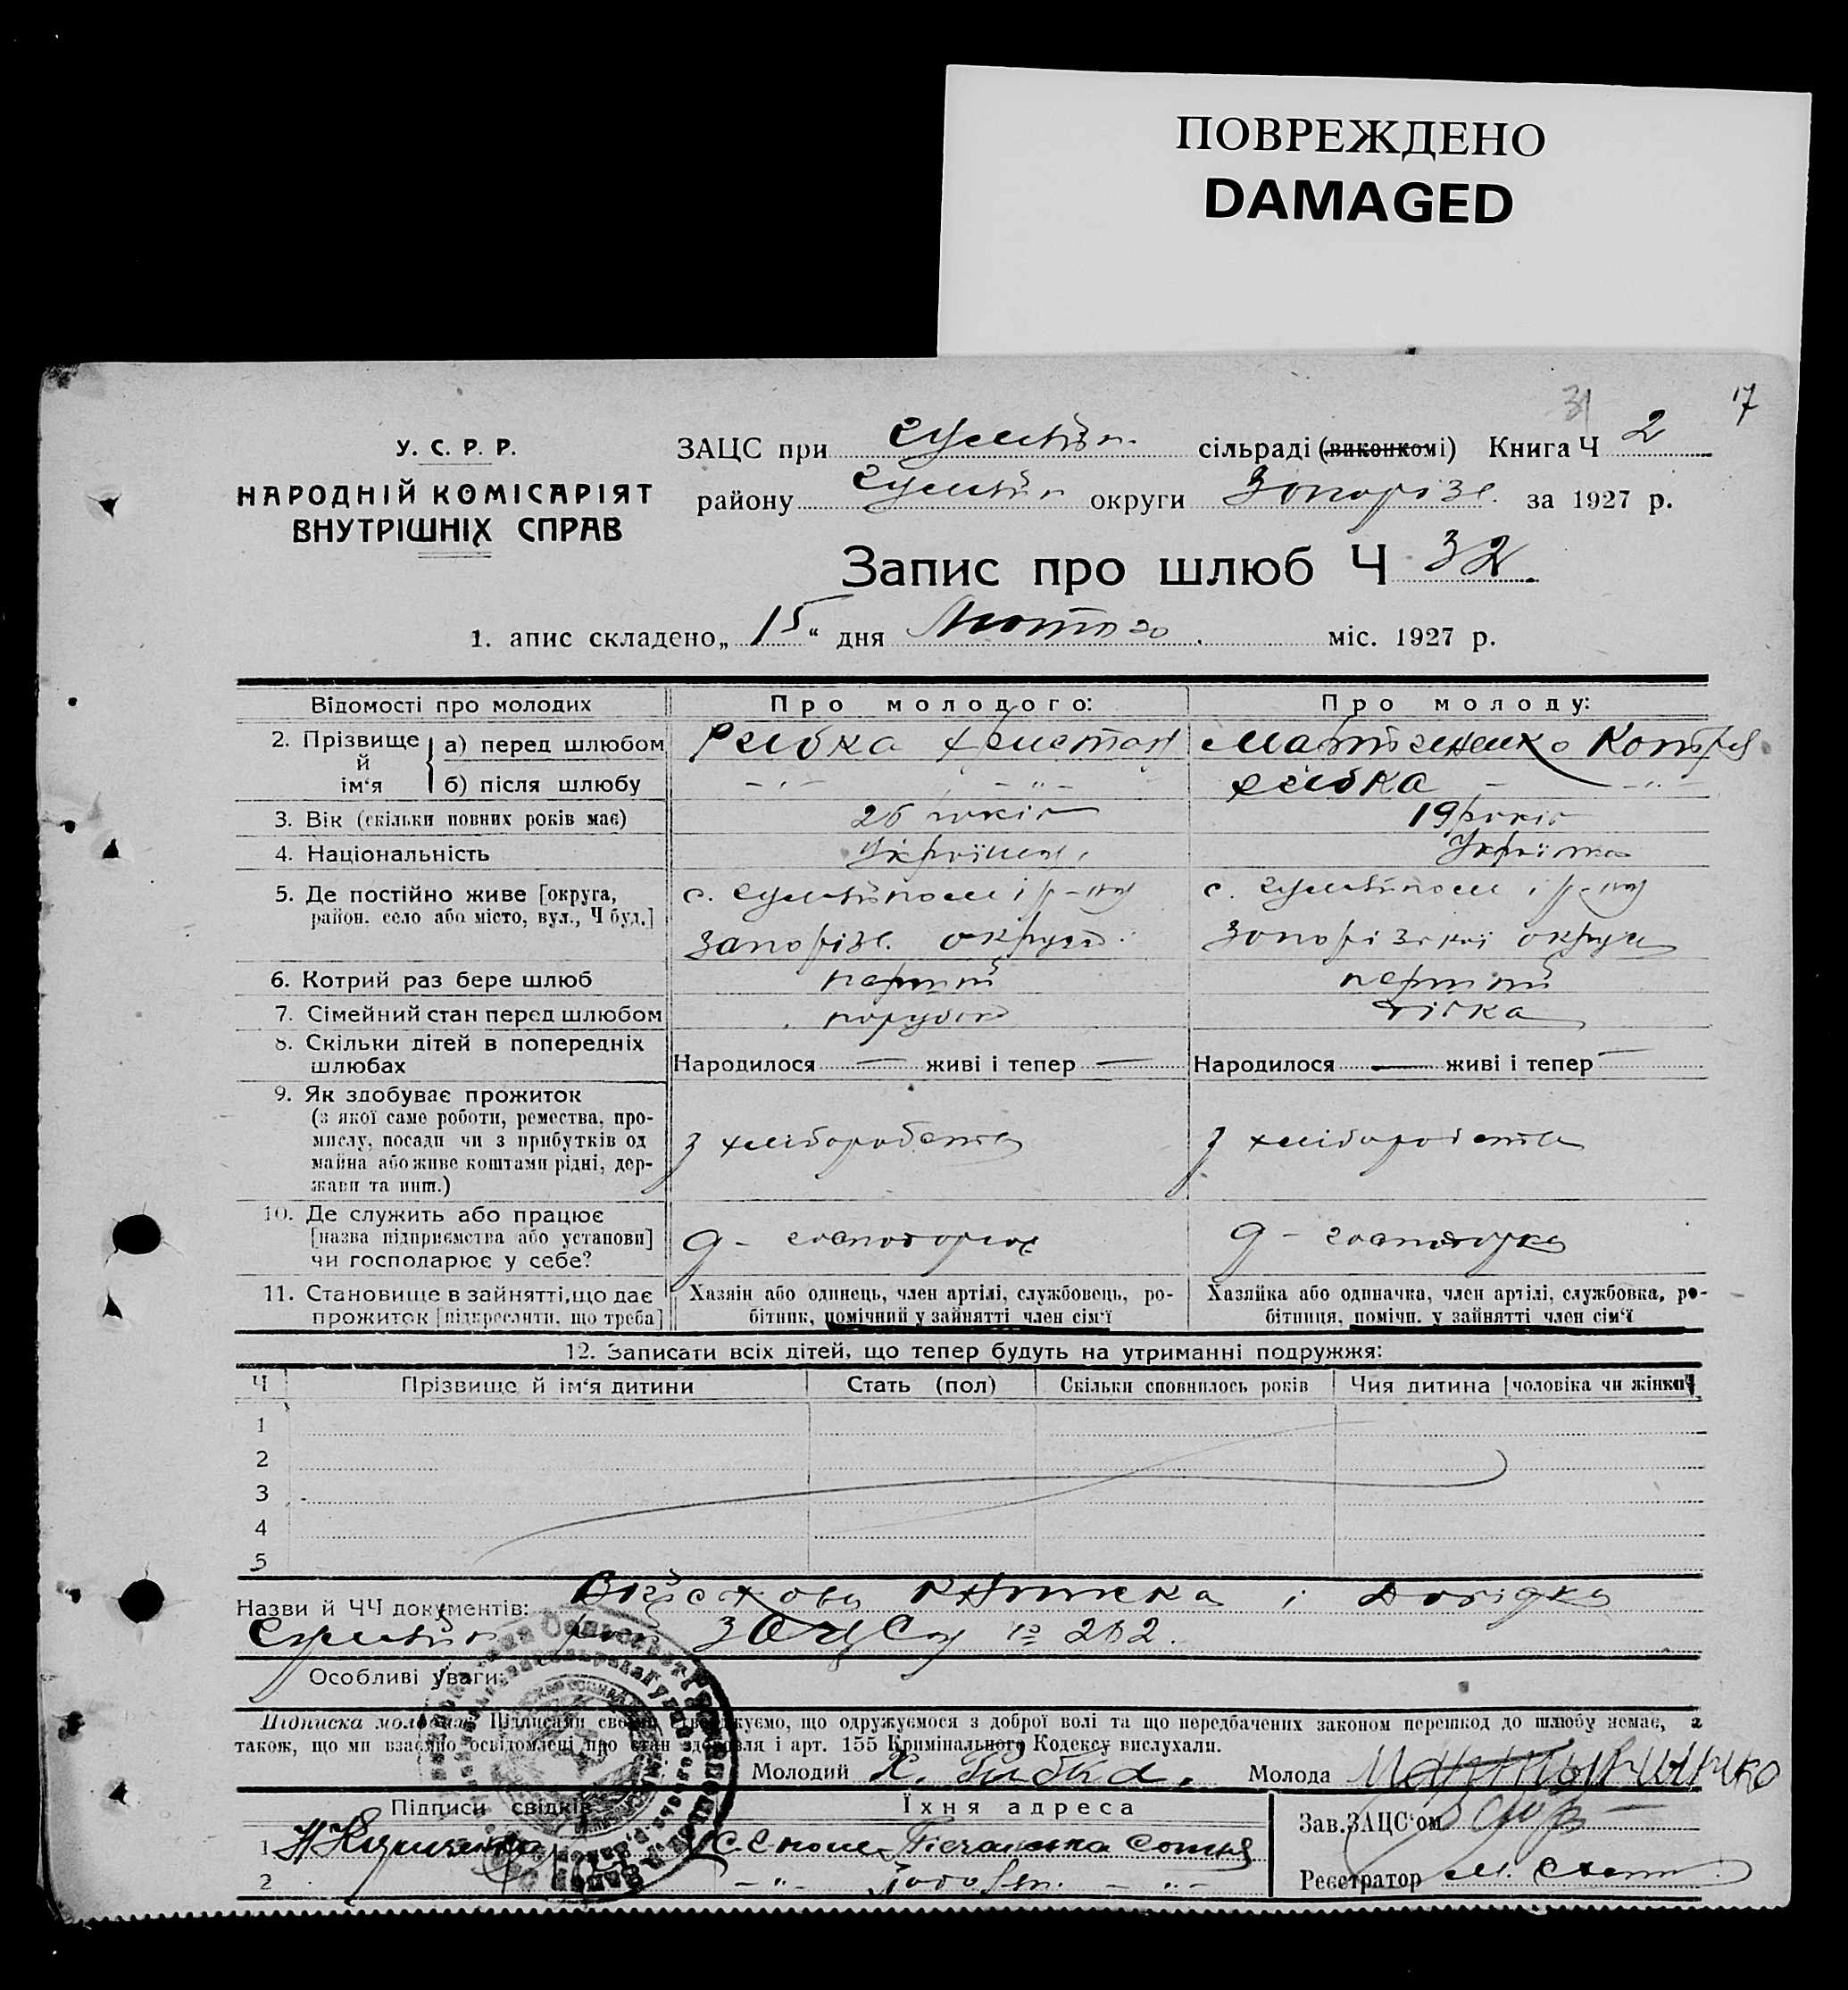 ПОВРЕЖДЕНО
DAMAGED
31 17
У. С. Р. Р.
НАРОДНІЙ КОМІСАРІЯТ
ВНУТРІШНІХ СПРАВ
ЗАЦС при Гуляйп. сільраді (виконкомі) Книга Ч 2
району Гуляйп округи Запоріз. за 1927 р.
Запис про шлюб Ч 32
1. апис складено „15“ дня Лютого міс. 1927 р.
Відомості про молодих Про молодого: Про молоду:
2. Прізвище й ім‘я
а) перед шлюбом Рибка Христан Матвієнко
б) після шлюбу -"- -"- Рибка -"-
3. Вік (скільки повних років має) 26 років 19 років
4. Національність Українец Українка
5. Де постійно живе [округа, с. Гуляйполе і р-на с. Гуляйполе і р-на
район. село або місто, вул., Ч буд.] Запоріз. округи Запорізької округи
6. Котрий раз бере шлюб перший перший
7. Сімейний стан перед шлюбом парубок дівка
8. Скільки дітей в попередніх
шлюбах Народилося — живі і тепер — Народилося — живі і тепер —
9. Як здобуває прожиток
(з якої саме роботи, ремества, про-
мислу, посади чи з прибутків од
майна або живе коштами рідні, дер-
жави та инш.)
з хліборобства з хліборобства
10. Де служить або працює
[назва підприємства або установи]
чи господарює у себе?
11. Становище в зайнятті, що дає
прожиток [підкреслити, що треба]
Хазяін або одинець, член артілі, службовець, ро-
бітник, помічний у зайнятті член сім‘ї
Хазяйка або одиначка, член артілі, службовка, ро-
бітниця, помічн. у зайнятті член сім‘ї
12. Записати всіх дітей, що тепер будуть на утриманні подружжя:
Ч Прізвище й ім‘я дитини Стать (пол) Скільки сповнилось років Чия дитина [чоловіка чи жінки]
1
2
3
4
5
Назви й ЧЧ документів: Військова книжка і довідка
Гуляйп рай ЗАЦСу № 282.
Особливі уваги:
Підписка молодих: Підписами своїми стверджуємо, що одружуємося з доброї волі та що передбачених законом перешкод до шлюбу немає, а
також, що ми взаємно освідомлені про стан здоровля і арт. 155 Кримінального Кодексу вислухали.
Молодий Х. Рибка. Молода
Підписи свідків Їхня адреса
Зав.ЗАЦС‘ом
1
2 -"- -"-
Реєстратор